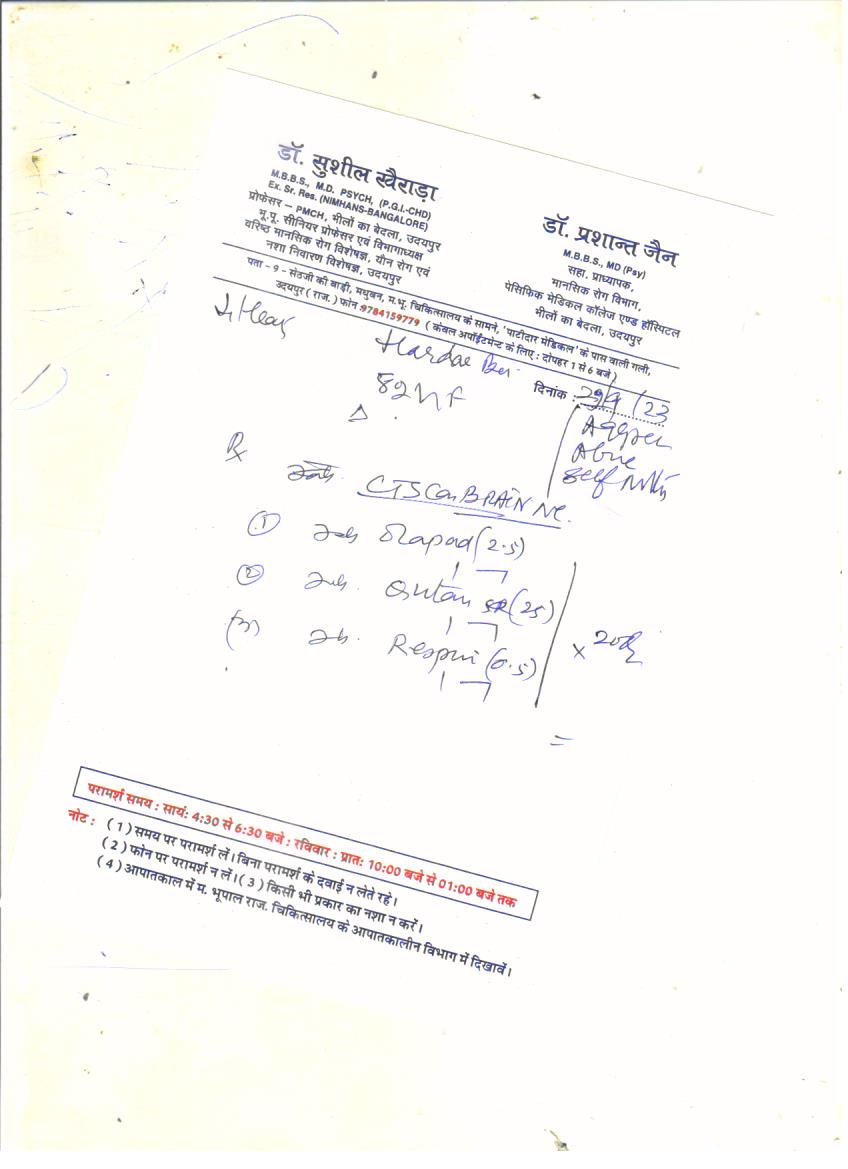 डॉ. सुशील खैराड़ा
M.B.B.S., M.D. PSYCH, (P.G.I.-CHD)
Ex. Sr. Res. (NIMHANS-BANGALORE)
प्रोफेसर – PMCH, भीलों का बेदला, उदयपुर
भू.पू. सीनियर प्रोफेसर एवं विभागाध्यक्ष
वरिष्ठ मानसिक रोग विशेषज्ञ, यौन रोग एवं
नशा निवारण विशेषज्ञ, उदयपुर
डॉ. प्रशान्त जैन
M.B.B.S., MD (Psy)
सहा. प्राध्यापक,
मानसिक रोग विभाग,
पेसिफिक मेडिकल कॉलेज एण्ड हॉस्पिटल
भीलों का बेदला, उदयपुर
पता – 9 – सेठजी की बाड़ी, मधुबन, म.भू. चिकित्सालय के सामने, 'पाटीदार मेडिकल' के पास वाली गली,
उदयपुर ( राज. ) फोन :9784159779 ( केवल अपॉईंटमेन्ट के लिए : दोपहर 1 से 6 बजे )
दिनांक : 29/9/23
82 F
Self
Rx
CT Scan BRAIN NC.
(1) (2.5)
(2) Qutan SR (25)
(3) (0.5)
x 20
परामर्श समय : सायं: 4:30 से 6:30 बजे : रविवार : प्रात: 10:00 बजे से 01:00 बजे तक
नोट : ( 1 ) समय पर परामर्श लें। बिना परामर्श के दवाई न लेते रहे।
( 2 ) फोन पर परामर्श न लें। ( 3 ) किसी भी प्रकार का नशा न करें।
( 4 ) आपातकाल में म. भूपाल राज. चिकित्सालय के आपातकालीन विभाग में दिखावें।